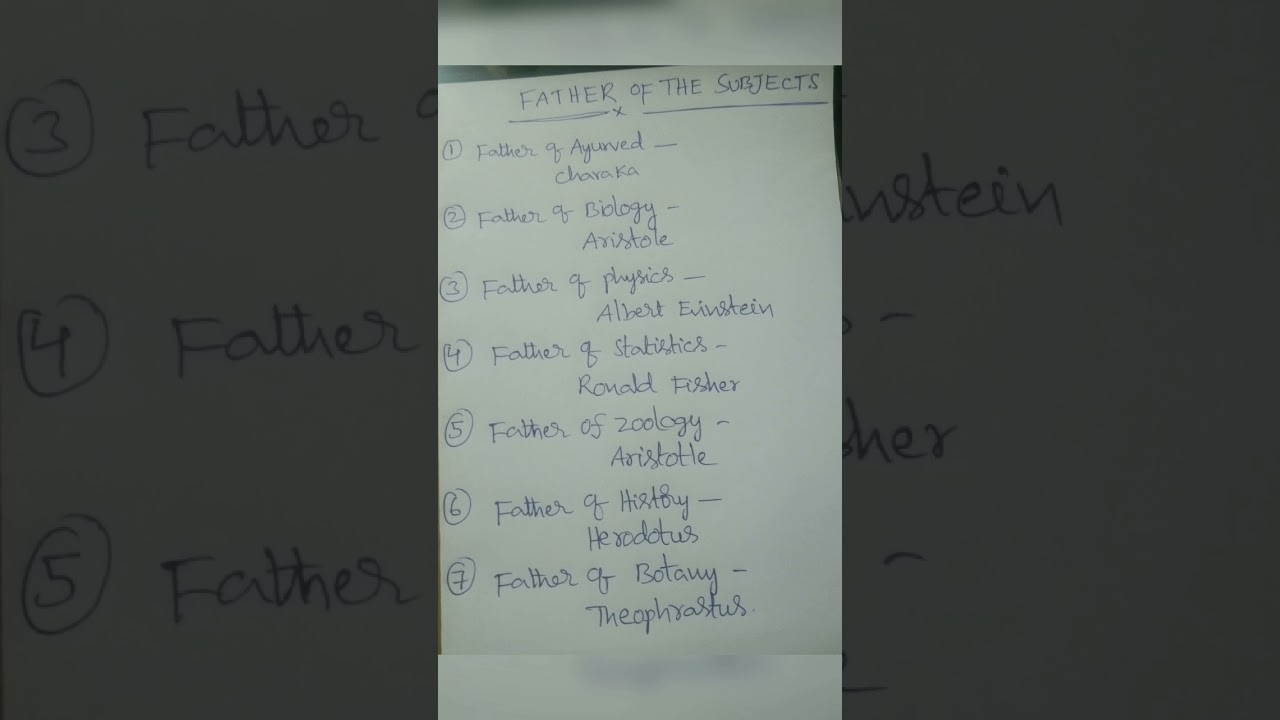 FATHER OF THE SUBJECTS
x
① Father of Ayurved —
Charaka
② Father of Biology -
Aristole
③ Father of physics —
Albert Evinstein
④ Father of Statistics -
Ronald Fisher
⑤ Father of zoology -
Aristotle
⑥ Father of History —
Herodotus
⑦ Father of Botany -
Theophrastus.